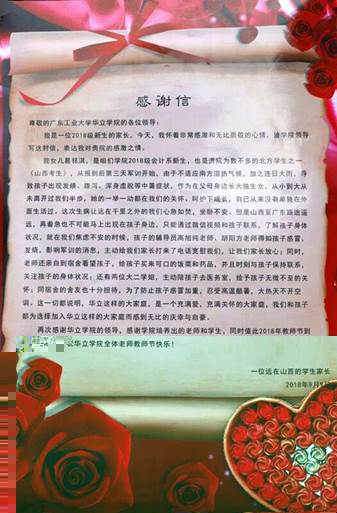 感谢信
尊敬的广东工业大学华立学院的各位领导：
我是一位2018级新生的家长，今天，我怀着非常感激和无比崇敬的心情，向学院领导
写这封信，表达我对贵院的感激之情。
我女儿葛钰淇，是咱们学院2018级会计系新生，也是贵院为数不多的北方学生之一
（山西考生），从到报道后第三天军训开始，由于不适应南方湿热气候，加之连日大雨，导
致孩子出现发烧、腹泻、浑身虚脱等中暑症状，作为在父母身边长大独生女，从小到大从
未离开过我们半步，她的一举一动都在我们的关怀、呵护下成长，自己从来没有单独在外
面生活过，这次生病让远在千里之外的我们心急如焚，坐卧不安，但是山西至广东路途遥
远，再着急也不可能马上出现在孩子身边，只能通过微信视频和孩子联系，了解孩子身体
状况，就在我们焦虑不安的时候，孩子的辅导员周旭纯老师、胡阳方老师得知孩子感冒
发烧，影响军训的消息，主动给我们家长打来了电话宽慰我们，让我们家长放心；同时，
老师还亲自到宿舍看望孩子，给孩子买来可口的饭菜和药品，并且时刻与孩子保持联系，
关注孩子的身体状况；还有两位大二学姐，主动陪孩子去医务室，给予孩子无微不至的关
怀；同宿舍的舍友也十分担待，为了防止孩子感冒加重，忍受高温酷暑，大热天不开空
调，这一切都说明，华立这样的大家庭，是一个充满爱，充满关怀的大家庭，我们和孩子
都为选择加入华立这样的大家庭而感到无比的庆幸与自豪。
再次感谢华立学院的领导，感谢学院培养出的老师和学生，同时值此2018年教师节到
华立学院全体老师教师节快乐！
一位远在山西的学生家长
2018年9月